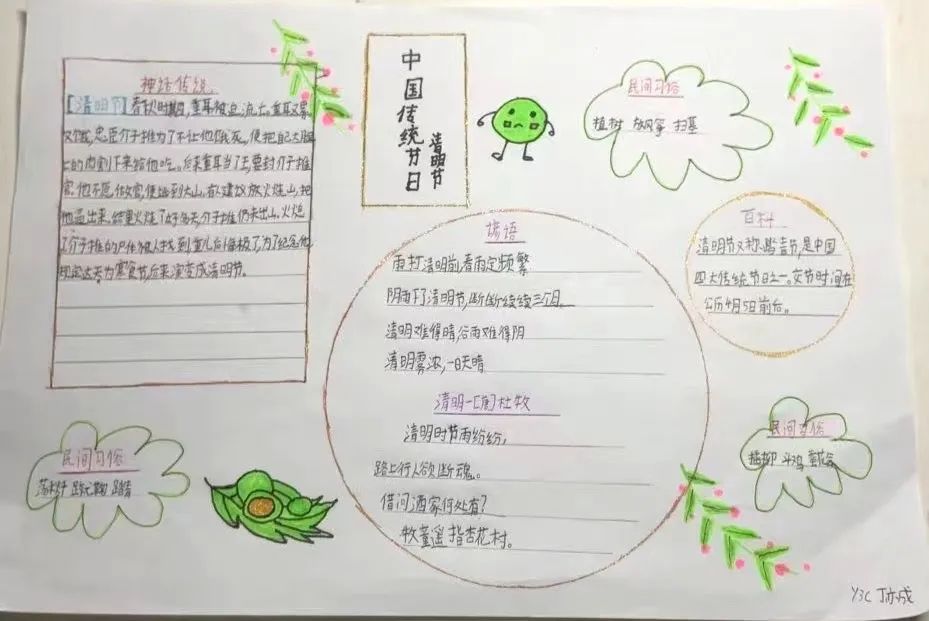 神话传说
[清明节]春秋时期,重耳被迫流亡。重耳又累
又饿,忠臣介子推为了不让他饿死,便把自己大腿
上的肉割下来给他吃。后来重耳当了王,要封介子推
官,他不愿做官,便逃到大山。有人建议放火烧山,把
他逼出来,结果火烧了好多天,介子推仍未出山。火熄
了介子推的尸体被人找到,重儿后悔极了,为了纪念他
规定这天为寒食节,后来演变成清明节。
中国传统节日
清明节
民间习俗
植树 放风筝 扫墓
谚语
雨打清明前,春雨定频繁
阴雨下了清明节,断断续续三个月。
清明难得晴,谷雨难得阴
清明雾浓,一日天晴
清明-[唐]杜牧
清明时节雨纷纷,
路上行人欲断魂。
借问酒家何处有?
牧童遥指杏花村。
百科
清明节又称踏青节,是中国
四大传统节日之一。交节时间在
公历4月5日前后。
民间习俗
荡秋千 蹴鞠 踏青
民间习俗
插柳 斗鸡 蚕花会
Y3C 丁亦成